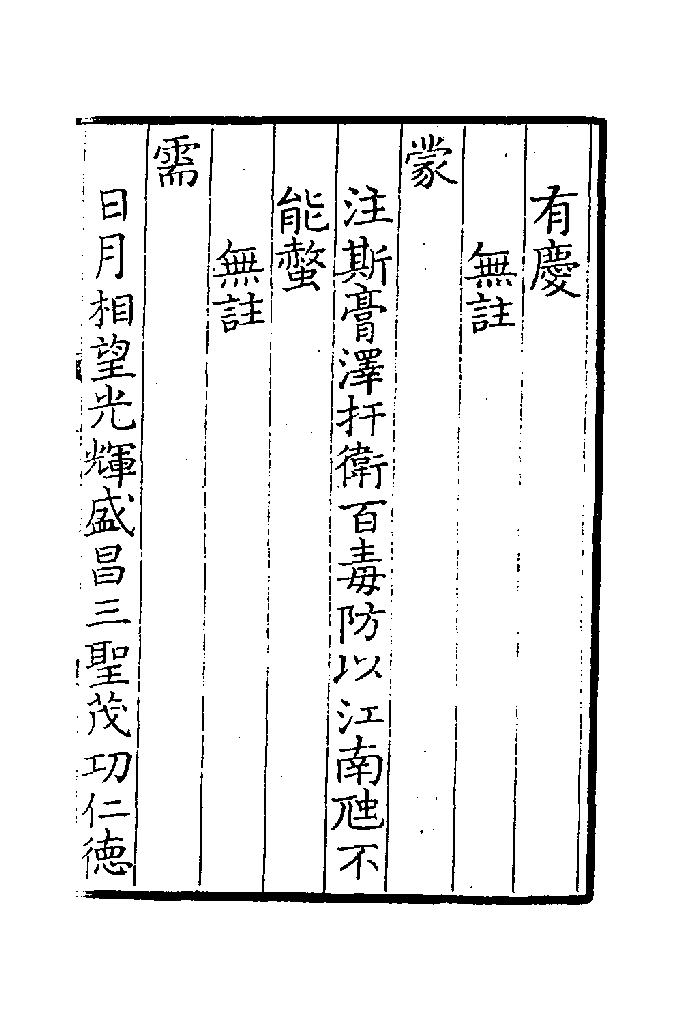 有慶
無註
蒙
注斯膏澤扞衛百毒防以江南虺不
能螫
無註
需
日月相望光輝盛昌三聖茂功仁德